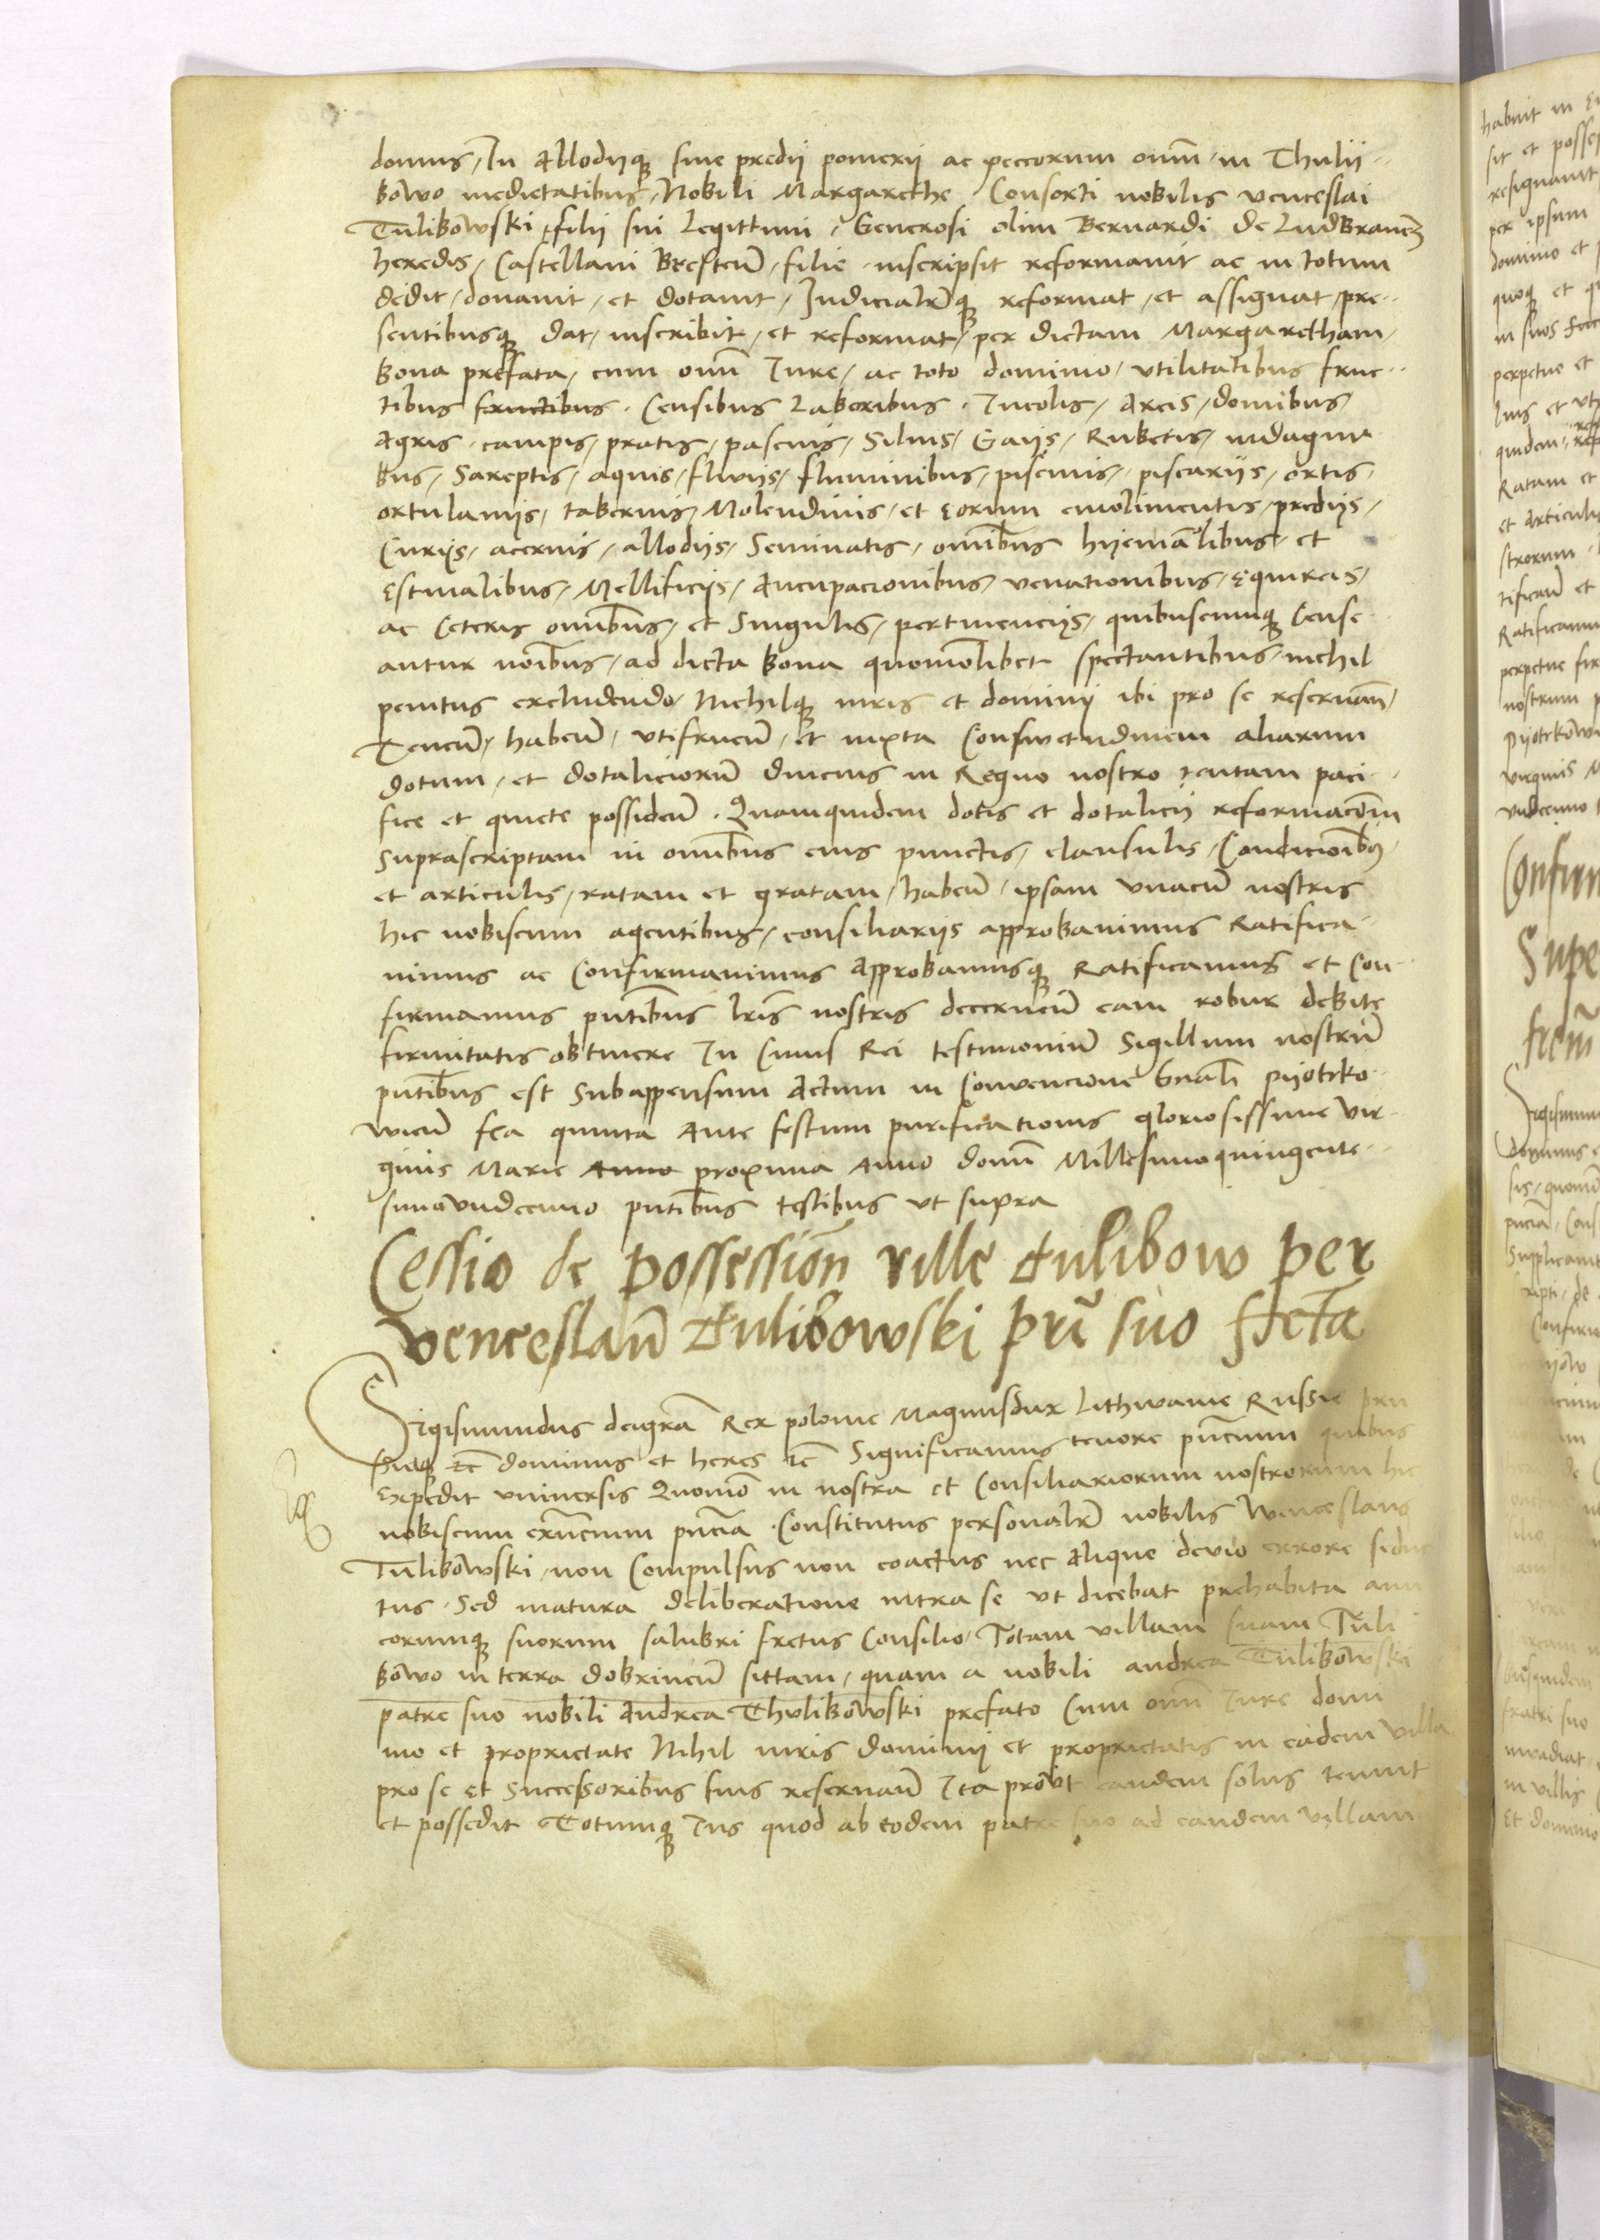 domus, In Allodijq̃ siue predij pomerij ac peccorum om̃ in Thulij-
bowo medietatibus, Nobili Margarethe Consorti nobilis venceslai
Tulibowski, filij sui Legittimi, Generosi olim Bernardi de Ludbrancz
heredis, Castellani Bresteñ, filie inscripsit reformauit ac in totum
dedit, donauit, et dotauit, Iudicialr̃q̃ reformat, et assignat, pre-
sentibusq̃ dat, inscribit, et reformat, per dictam Margaretham,
bona prefata, cum om̃i Iure, ac toto dominio, vtilitatibus fruc-
tibus fructibus, Censibus Laboribus, Incolis, Areis, domibus,
Agris, campis, pratis, pascuis, Siluis, Gaijs, Rubetis, indagini
bus, Sareptis, aquis, fluuijs, fluminibus, piscinis, piscarijs, ortis,
ortulanijs, tabernis, Molendinis, et Eorum emolimentis, predijs,
Curijs, aceruis, allodijs, Seminatis, om̃ibus hyemalibus, et
Estiualibus, Mellificijs, Aucupacionibus, venationibus, Equireis,
ac Ceteris om̃ibus, et Singulis, pertinencijs, quibuscumq̃ Cense
antur noĩbus, ad dicta bona quomolibet spectantibus, nichil
penitus excludendo, Nichilq̃ iuris et dominij ibi pro se reseruañ,
Teneñ, habeñ, vtifrueñ, et iuxta Consuetudinem aliarum
dotum, et dotaliciorũ diucius in Regno nostro tentam paci-
fice et quiete possideñ. Quamquidem dotis et dotalicij reformacõem
suprascriptam in om̃ibus eius punctis, clausulis, Condicionibus,
et articulis, ratam et gratam, habeñ, ipsam vnacũ nostris
hic nobiscum agentibus, consiliarijs approbauimus Ratifica-
uimus ac Confirmauimus Approbamusq̃ Ratificamus et Con-
firmamus pñtibus lr̃is nostris decerneñ eam robur debite
firmitatis obtinere In Cuius Rei testimoniũ Sigillum nostrũ
pñtibus est Subappensum Actum in Convencione Gñali Pijotrko-
wieñ fẽa quinta Ante festum purificationis gloriosissime vir-
ginis Marie Anno proxima Anno domĩ Millesimoquingente-
simovndecimo pñtibus testibus vt supra
Cessio de possessioñ ville Tulibow per
venceslaũ Tulibowski pr̃i suo fčta
Sigismundus deigr̃a Rex polonie Magnusdux Lithwanie Russie pru
sieq̃ ẽc dominus et heres ẽc Significamus tenore pñcium quibus
Expedit vniuersis Quomõ in nostra et Consiliariorum nostrorum hic
nobiscum exñcium pñcia Constitutus personalr̃ nobilis Winceslaus
Tulibowski, non Compulsus non coactus nec Alique deuio errore seduc
tus, Sed matura deliberatione intra se vt dicebat prehabita ami
corumq̃ suorum salubri fretus Consilio, Totam villam suam Tuli
bowo in terra dobrineñ sittam, quam a nobili andrea Tulibowski
patre suo nobili Andrea Thulibowski prefato Cum om̃i Iure domi
nio et proprietate Nihil iuris dominij et proprietatis in eadem villa
pro se et Successoribus suis reseruañ Ita prout eandem solus tenuit
et possedit Totumq̃ Ius quod ab eodem patre suo ad eandem villam